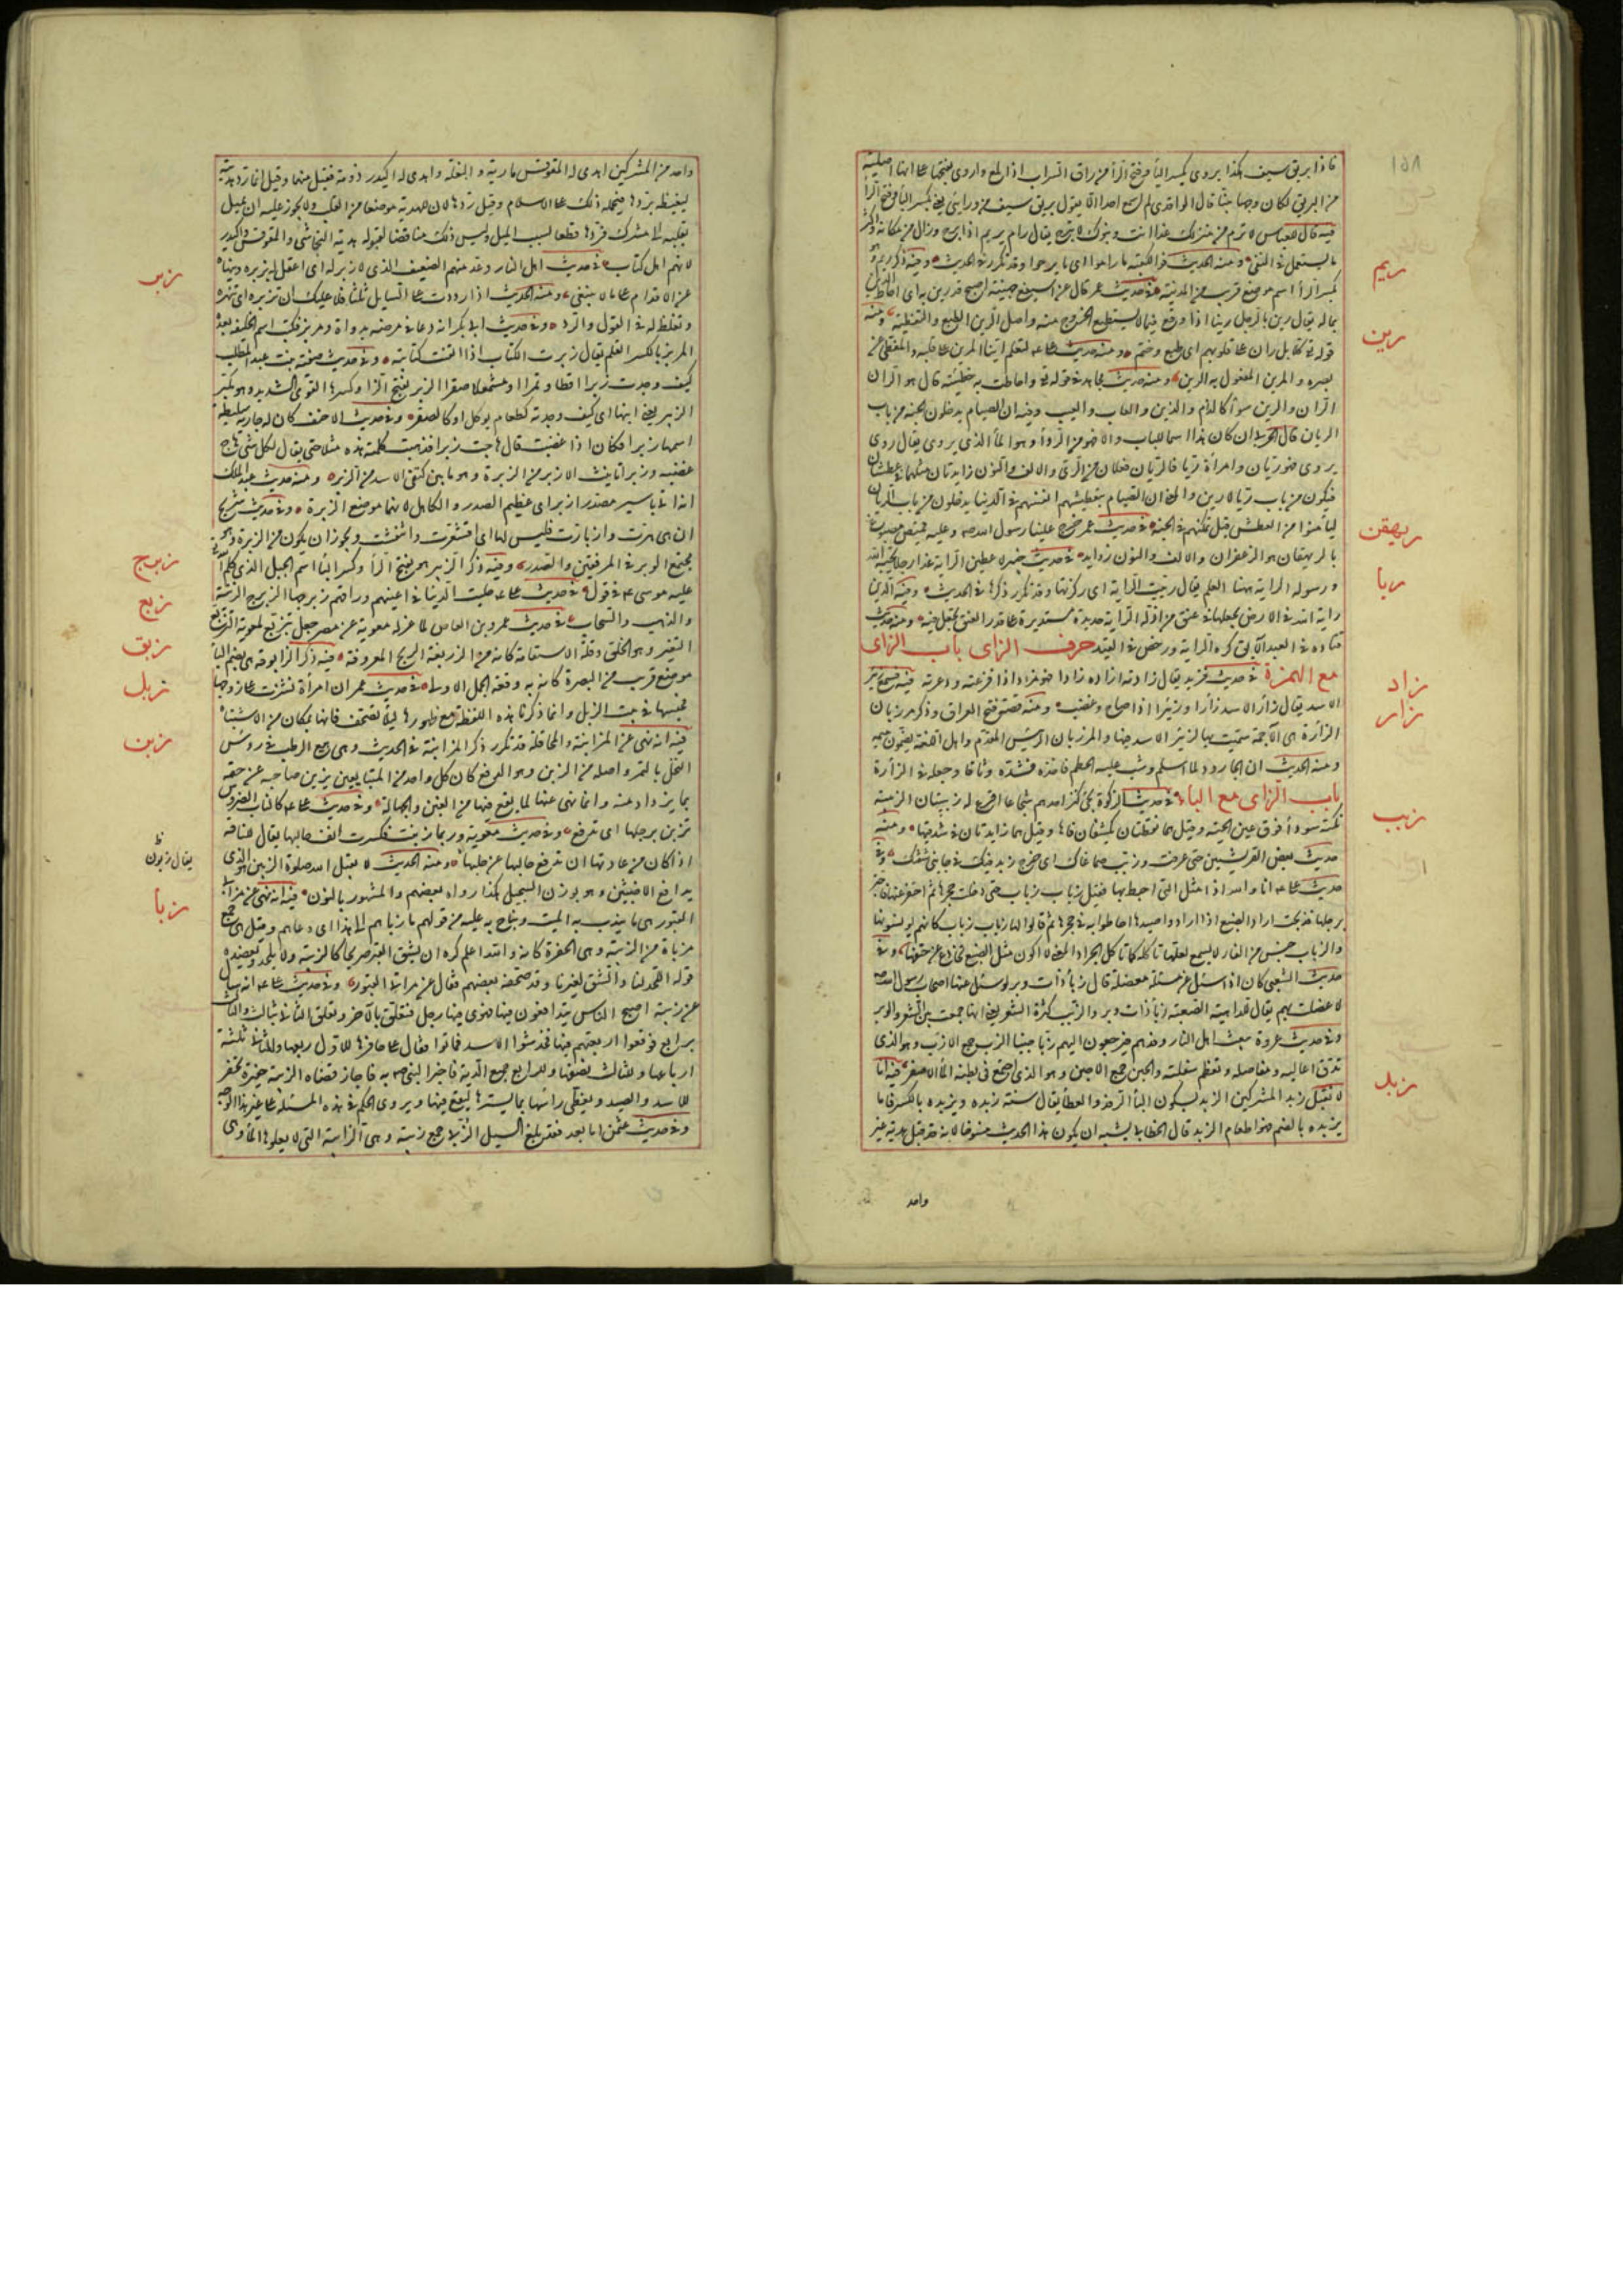 ١٥٨
فاذا بريق سيف هكذا يروى بكسر الباء وفتح الراء من راق السراب اذا لمع ولو روى بفتحها على انها اصلية
من البريق لكان وجها بينا قال الواقدى لم اسمع احدا الا يقول بريق سيف من ورائى يعنى بكسر الباء وفتح الراء
فيه قال للعباس لا ترم من منزلك غدا انت وبنوك اى لا تبرح يقال رام يريم اذا برح وزال من مكانه واكثر
ما يستعمل فى النفى ومنه الحديث فوالكعبة ما راموا اى ما برحوا وقد تكرر فى الحديث وفيه ذكر ريم هو
بكسر الراء اسم موضع قريب من المدينة فى حديث عمر قال عن اسيفع جهينة اصبح قد رين به اى احاط الدين
بماله يقال رين بالرجل رينا اذا وقع فيما لا يستطيع الخروج منه واصل الرين الطبع والتغطية ومنه
قوله تعالى كلا بل ران على قلوبهم اى طبع وختم ومنه حديث على لتعلم اينا المرين على قلبه والمغطى على
بصره والمرين المفعول به الرين ومنه حديث مجاهد فى قوله تعالى واحاطت به خطيئته قال هو الران
الران والرين سواء كالذام والذيم والعاب والعيب وفيه ان الصيام يدخلون الجنة من باب
الريان قال الحربى ان كان هذا اسما للباب والا فهو من الرواء وهو الماء الذى يروى يقال روى
يروى فهو ريان وامرأة ريا فالريان فعلان من الرى والالف والنون زايدتان مثلهما فى عطشان
فيكون من باب ريا لا رين والمعنى ان الصيام بتعطيشهم انفسهم فى الدنيا يدخلون من باب الريان
ليأمنوا من العطش قبل تمكنهم فى الجنة فى حديث عمر خرج علينا رسول الله صم وعليه قميص مصبوغ
بالريهقان هو الزعفران والالف والنون زوايد فى حديث خيبر لاعطين الراية غدا رجلا يحبه الله
ورسوله الراية ههنا العلم يقال رييت الراية اى ركزتها وقد تكرر ذكرها فى الحديث ومنه الدين
راية الله فى الارض يجعلها فى عنق من اذله الراية حديدة مستديرة على قدر العنق تجعل فيه ومنه حديث
قتادة فى العبد الآبق كره له الراية ورخص فى القيد حرف الزاى باب الزاى
مع الهمزة فى حديث فزيد يقال زأدته ازأده زأدا فهو مزءود اذا فزعته وذعرته فيه فسمع زئير
الاسد يقال زأر الاسد زأرا وزئيرا اذا صاح وغضب ومنه قصة فتح العراق وذكر مرزبان
الزأرة هى الاجمة سميت بها لزئير الاسد فيها والمرزبان الرئيس المقدم واهل اللغة يضمون ميمه
ومنه الحديث ان الجارود لما اسلم وثب عليه الحطم فاخذه فشده وثاقا وجعله فى الزأرة
باب الزاى مع الباء فى حديث الزكوة يجئ كنز احدهم شجاعا اقرع له زبيبتان الزبيبة
نكتة سوداء فوق عين الحية وقيل هما نقطتان تكتنفان فاها وقيل هما زبدتان فى شدقيها ومنه
حديث بعض القرشيين حتى عرقت وزبب صماغاك اى خرج زبد فيك فى جانبى شفتك وفى
حديث على انا والله اذا مثل التى احيط بها فقيل زباب زباب حتى دخلت جحرها ثم احتفر عنها فاجتر
برجلها فذبحت اراد الضبع اذا ارادوا صيدها احاطوا بها فى جحرها ثم قالوا لها زباب زباب كانهم يؤنسونها
والزباب جنس من الفار لا يسمع لعلها تاكله كما تاكل الجراد المعنى لا اكون مثل الضبع تخادع عن حتفها وفى
حديث الشعبى كان اذا سئل عن مسئلة معضلة قال زباء ذات وبر لو سئل عنها اصحاب رسول الله صم
لاعضلت بهم يقال للداهية الصعبة زباء ذات وبر والزبب كثرة الشعر يعنى انها جمعت بين الشعر والوبر
وفى حديث عروة يبعث اهل النار وفدهم فيرجعون اليهم زبا حبنا الزب جمع الازب وهو الذى
تدق اعاليه ومفاصله وتعظم سفلته والحبن جمع الاحبن وهو الذى اجتمع فى بطنه الماء الاصفر فيه انا
لا نقبل زبد المشركين الزبد بسكون الباء الرفد والعطاء يقال منه زبده يزبده بالكسر فاما
يزبده بالضم فهو اطعام الزبد قال الخطابى يشبه ان يكون هذا الحديث منسوخا لانه قد قبل هدية غير
واحد
ريم
رين
ريهقن
ريا
زاد
زار
زبب
زبد
واحد من المشركين اهدى له المقوقس مارية والبغلة واهدى له اكيدر دومة فقبل منهما وقيل انما رد هديته
ليغيظه بردها فيحمله ذلك على الاسلام وقيل ردها لان للهدية موضعا من القلب ولا يجوز عليه ان يميل
بقلبه الى مشرك فردها قطعا لسبب الميل وليس ذلك مناقضا لقبوله هدية النجاشى والمقوقس واكيدر
لانهم اهل كتاب فى حديث اهل النار وعد منهم الضعيف الذى لا زبر له اى لا عقل له يزبره وينهاه
عن الاقدام على ما لا ينبغى ومنه الحديث اذا رددت على السايل ثلثا فلا عليك ان تزبره اى تنهره
وتغلظ له فى القول والرد وفى حديث ابى بكر انه دعا فى مرضه بدواة ومزبر فكتب اسم الخليفة بعده
المزبر بالكسر القلم يقال زبرت الكتاب اذا اتقنت كتابته وفى حديث صفية بنت عبد المطلب
كيف وجدت زبرا اقطا وتمرا او مشمعلا صقرا الزبر بفتح الزاء وكسرها القوى الشديد وهو مكبر
الزبير يعنى ابنها اى كيف وجدته كطعام يوكل او كالصقر وفى حديث الاحنف كان له جارية سليطة
اسمها زبراء فكان اذا غضبت قال هاجت زبراء فذهبت كلمته هذه مثلا حتى يقال لكل شئ هاج
غضبه وزبراء تانيث الازبر من الزبرة وهو ما بين كتفى الاسد من الوبر ومنه حديث عبد الملك
انه اتى باسير مصدر ازبر اى عظيم الصدر والكاهل لانهما موضع الزبرة وفى حديث شريح
ان هى هرت وازبارت فليس لها اى اقشعرت وانتفشت ويجوز ان يكون من الزبرة وهى
مجتمع الوبر فى المرفقين والصدر وفيه ذكر الزبير هو بفتح الزاء وكسر الباء اسم الجبل الذى كلم الله
عليه موسى عم فى قول فى حديث على حليت الدنيا فى اعينهم وراقهم زبرجها الزبرج الزينة
والذهب والسحاب فى حديث عمرو بن العاص لما عزله معوية عن مصر جعل يتزبع لمعوية التزبع
التغير وسوء الخلق وقلة الاستقامة كانه من الزوبعة الريح المعروفة فيه ذكر الزابوقة هى بضم الباء
موضع قريب من البصرة كانت به وقعة الجمل الاولى فى حديث عمر ان امرأة نشزت على زوجها
فحبسها فى بيت الزبل وانما ذكرنا هذه اللفظة مع ظهورها ليلا تصحف فانها بمكان من الاشتباه
فيه انه نهى عن المزابنة والمحاقلة قد تكرر ذكر المزابنة فى الحديث وهى بيع الرطب فى رؤس
النخل بالتمر واصله من الزبن وهو الدفع كان كل واحد من المتبايعين يزبن صاحبه عن حقه
بما يزداد منه وانما نهى عنها لما يقع فيها من الغبن والجهالة وفى حديث على كالناب الضروس
تزبن برجلها اى تدفع وفى حديث معوية وربما زبنت فكسرت انف حالبها يقال للناقة
اذا كان من عادتها ان تدفع حالبها عن حلبها ومنه الحديث لا يقبل الله صلوة الزبين الذى
يدافع الاخبثين وهو بوزن السجيل هكذا رواه بعضهم والمشهور بالنون فيه انه نهى عن مزابى
القبور هى ما يندب به الميت ويناح به عليه من قولهم ما زباهم الى هذا اى دعاهم وقيل هى جمع
مزباة من الزبية وهى الحفرة كانه والله اعلم كره ان يشق القبر ضريحا كالزبية ولا يلحد ويعضده
قوله اللحد لنا والشق لغيرنا وقد صحفه بعضهم فقال عن مراثى القبور وفى حديث على انه سئل
عن زبية اصبح الناس يتدافعون فيها فهوى فيها رجل فتعلق بآخر وتعلق الثانى بثالث والثالث
برابع فوقعوا اربعتهم فيها فخدشهم الاسد فماتوا فقال على حافرها للاول ربعها وللثانى ثلثة
ارباعها وللثالث نصفها وللرابع جميع الدية فاخبر النبى صم به فاجاز قضاه الزبية حفيرة تحفر
للاسد والصيد ويغطى رأسها بما يسترها ليقع فيها ويروى الحكم فى هذه المسئلة على غير هذا الوجه
وفى حديث عثمن اما بعد فقد بلغ السيل الزبى جمع زبية وهى الرابية التى لا يعلوها الماء وهى
زبر
زبرج
زبع
زبق
زبل
زبن
يقال زبون
زبا